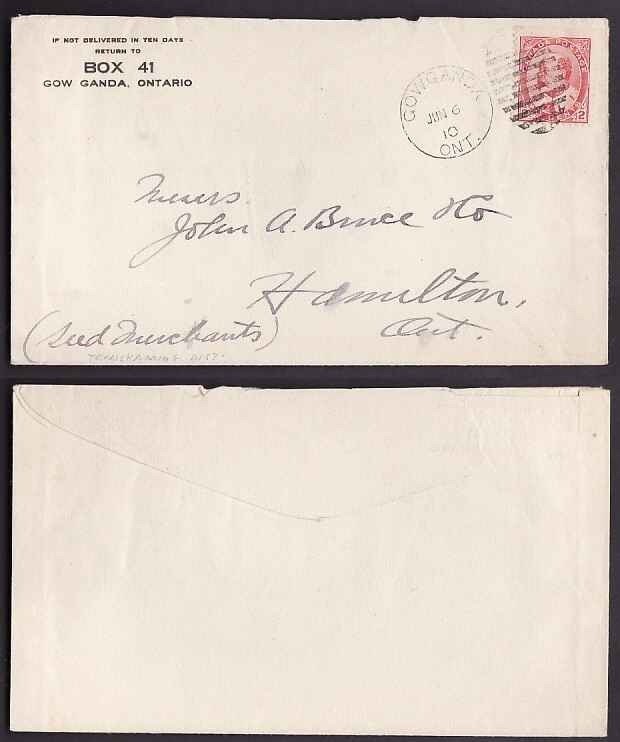 IF NOT DELIVERED IN TEN DAYS
RETURN TO
BOX 41
GOW GANDA, ONTARIO
GOWGANDA
JUN 6
10
ONT.
POSTAGE
2
Messrs.
John A. Bruce & Co
Hamilton,
Ont.
(Seed Merchants)
DIST.